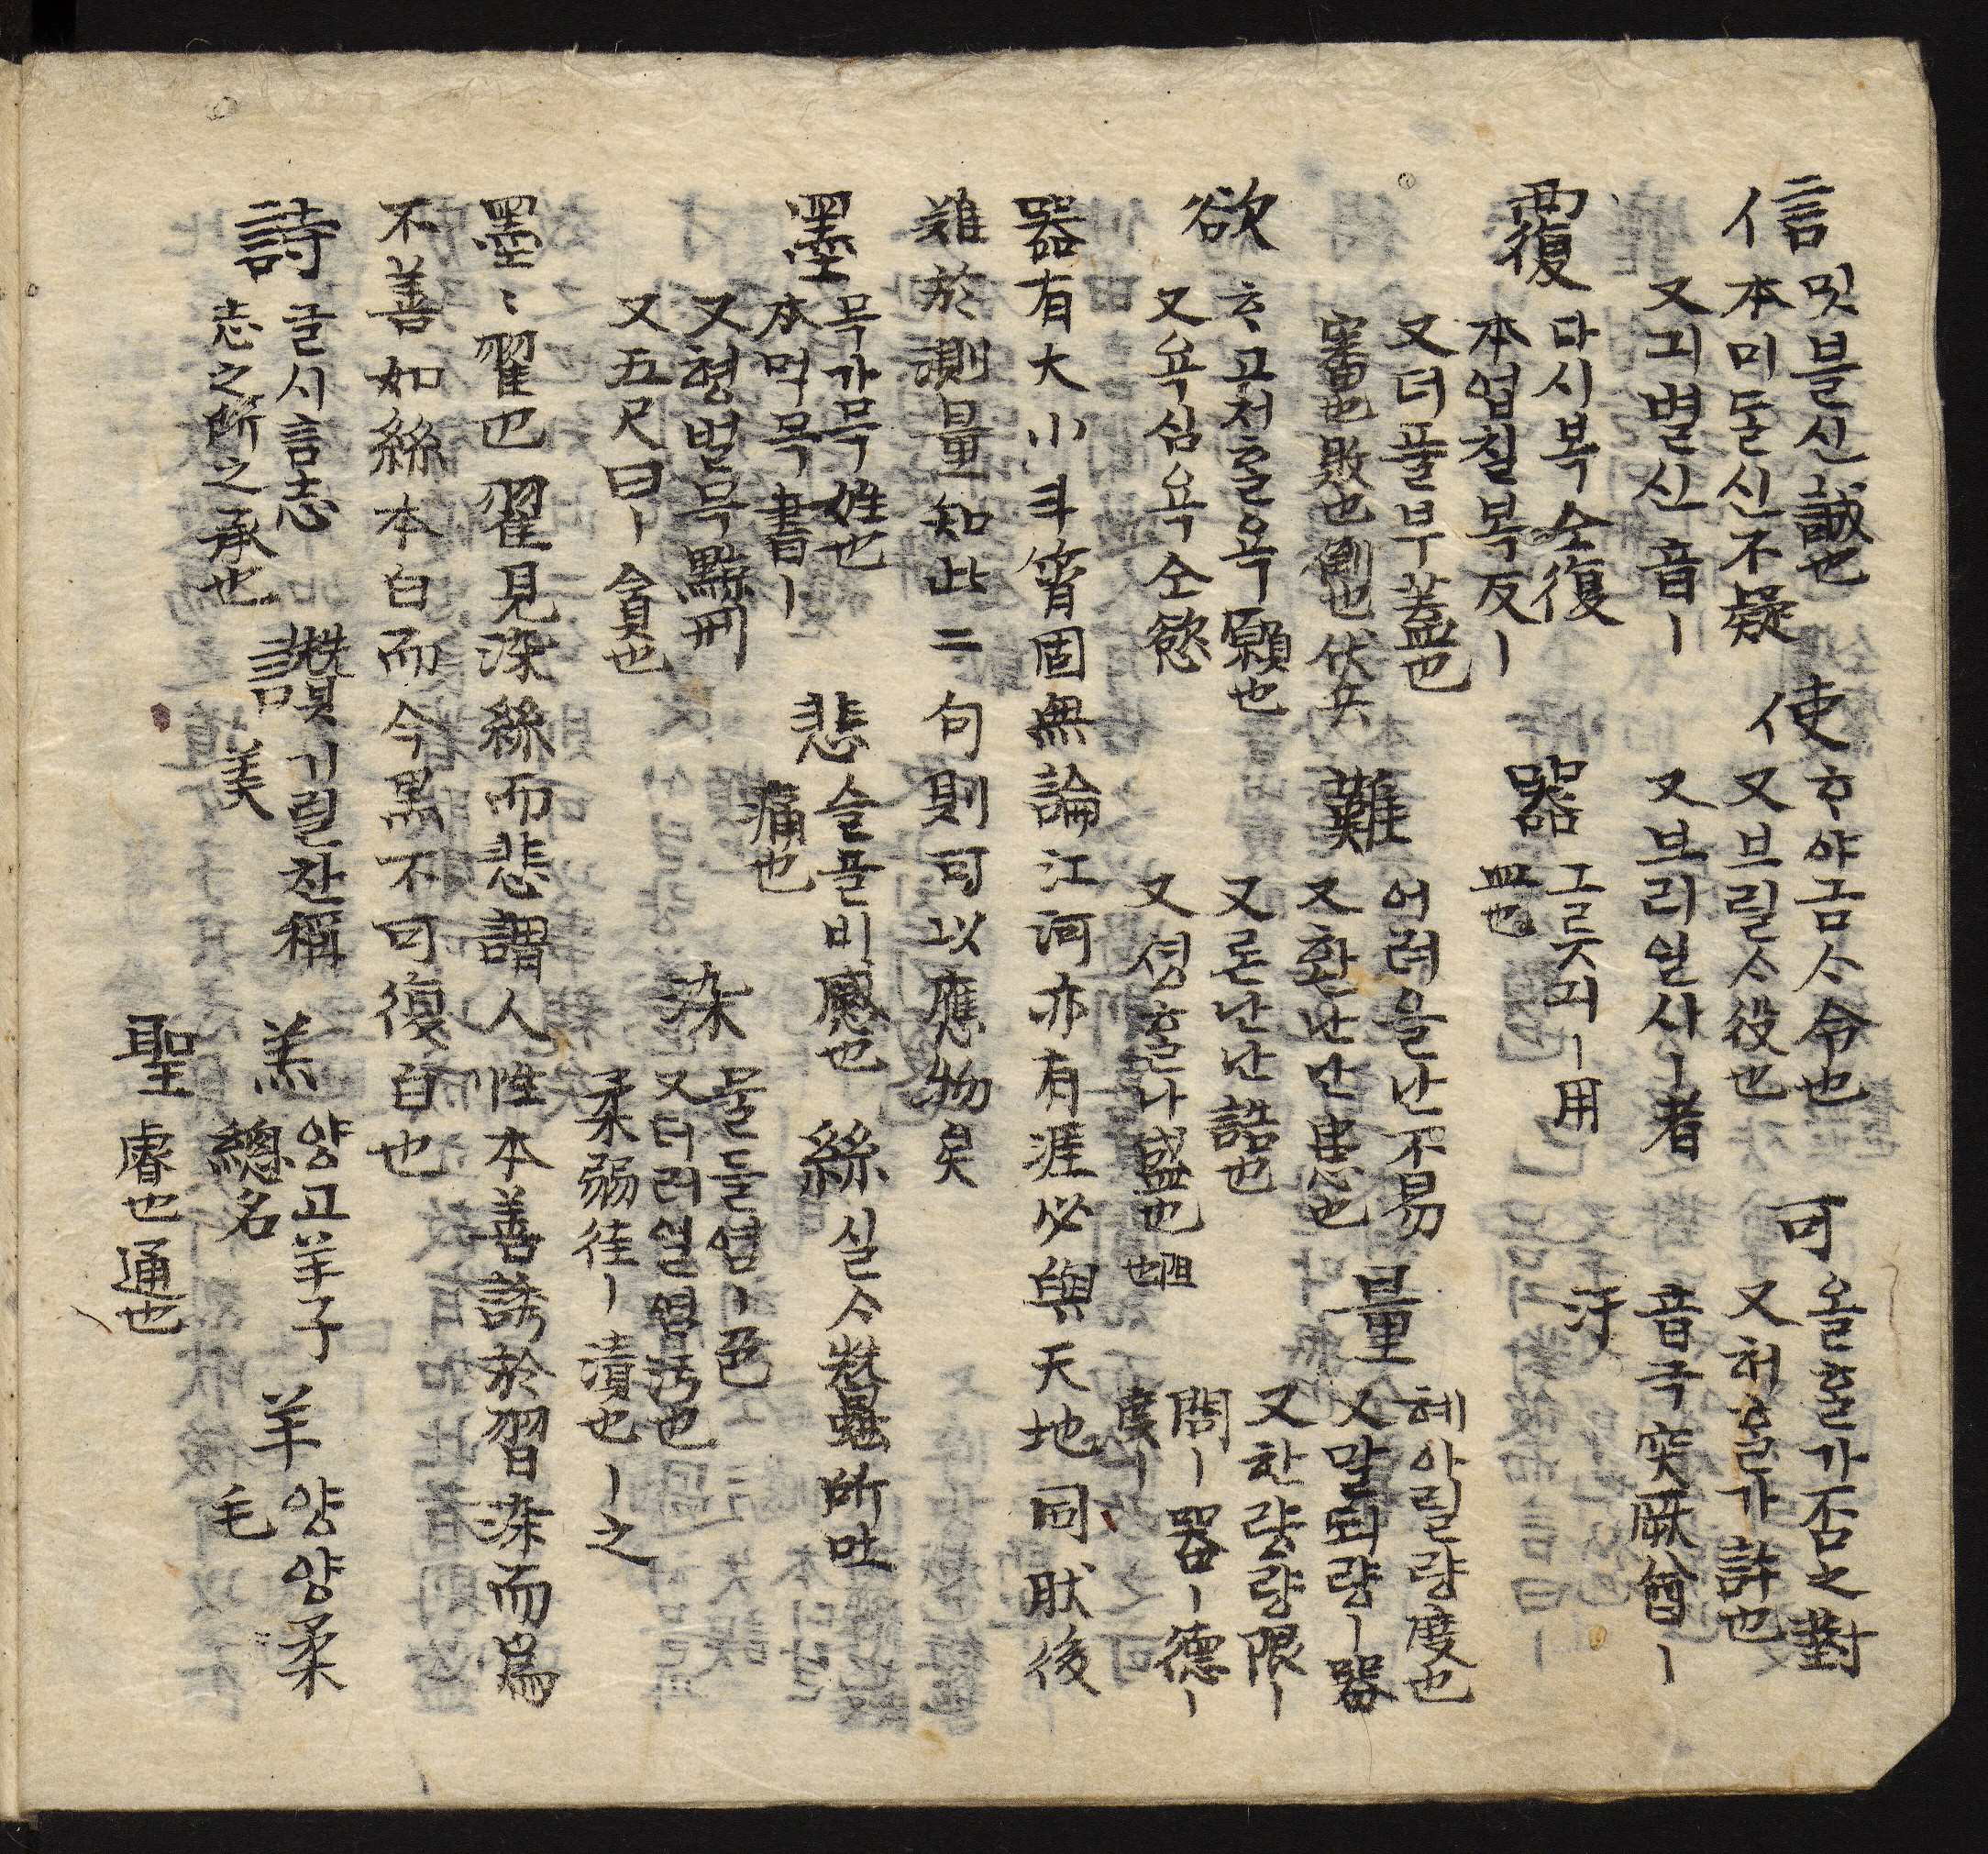 信 밋블신 誠也
本미돌신 不疑
又괴별신 音ㅣ
使 ᄒᆞ야금ᄉᆞ 令也
又브릴ᄉᆞ 役也
又브리일사 ㅣ者
可 올흘가 否之對
又허홀가 許也
音극 突厥酋ㅣ
汗
覆 다시복 仝復
本업칠복 反ㅣ
又더풀부 盖也
審也 敗也 倒也 伏兵
器 그릇긔 ㅣ用
皿也
欲 ᄒᆞ고져홀욕 願也
又욕심욕 仝慾
難 어려을난 不易
又환난난 患也
又론난난 詰也
又셩ᄒᆞᆯ나 盛也
量 혜아릴량 度也
又말되량 ㅣ器
又한량량 限ㅣ
問ㅣ器ㅣ德ㅣ
度ㅣ
器有大小斗筲固無論江河亦有涯必與天地同肰後
難於測量知此二句則可以應物矣
墨 묵가묵 姓也
本먹묵 書ㅣ
又형벌묵 黥刑
又五尺曰ㅣ 貪也
悲 슬플비 感也
痛也
絲 실ᄉᆞ 蚕所吐
染 물들염 ㅣ色
又더러일염 汚也
柔弱 ㅣ漬也 ㅣ之
墨〻翟也翟見染絲而悲謂人性本善誘於習染而爲
不善如絲本白而今黑不可復白也
詩 글시 言志
志之所之承也
讃 기릴찬 稱
美
羔 양고 羊子
總名
羊 양양 柔
毛
聖 睿也 通也